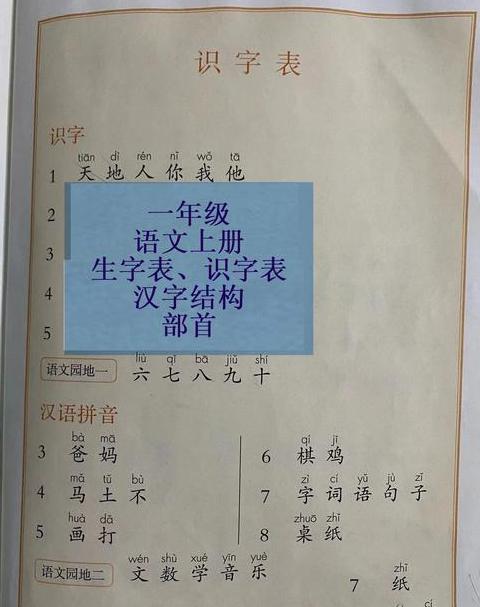 识字表
识字
tiān dì rén nǐ wǒ tā
1 天 地 人 你 我 他
2
3
4
5
一年级
语文上册
生字表、识字表
汉字结构
部首
liù qī bā jiǔ shí
语文园地一 六 七 八 九 十
汉语拼音
bà mā
3 爸 妈
mǎ tǔ bù
4 马 土 不
huà dǎ
5 画 打
qí jī
6 棋 鸡
zì cí yǔ jù zǐ
7 字 词 语 句 子
zhuō zhǐ
8 桌 纸
wén shù xué yīn yuè
语文园地二 文 数 学 音 乐
zhǐ
7 纸